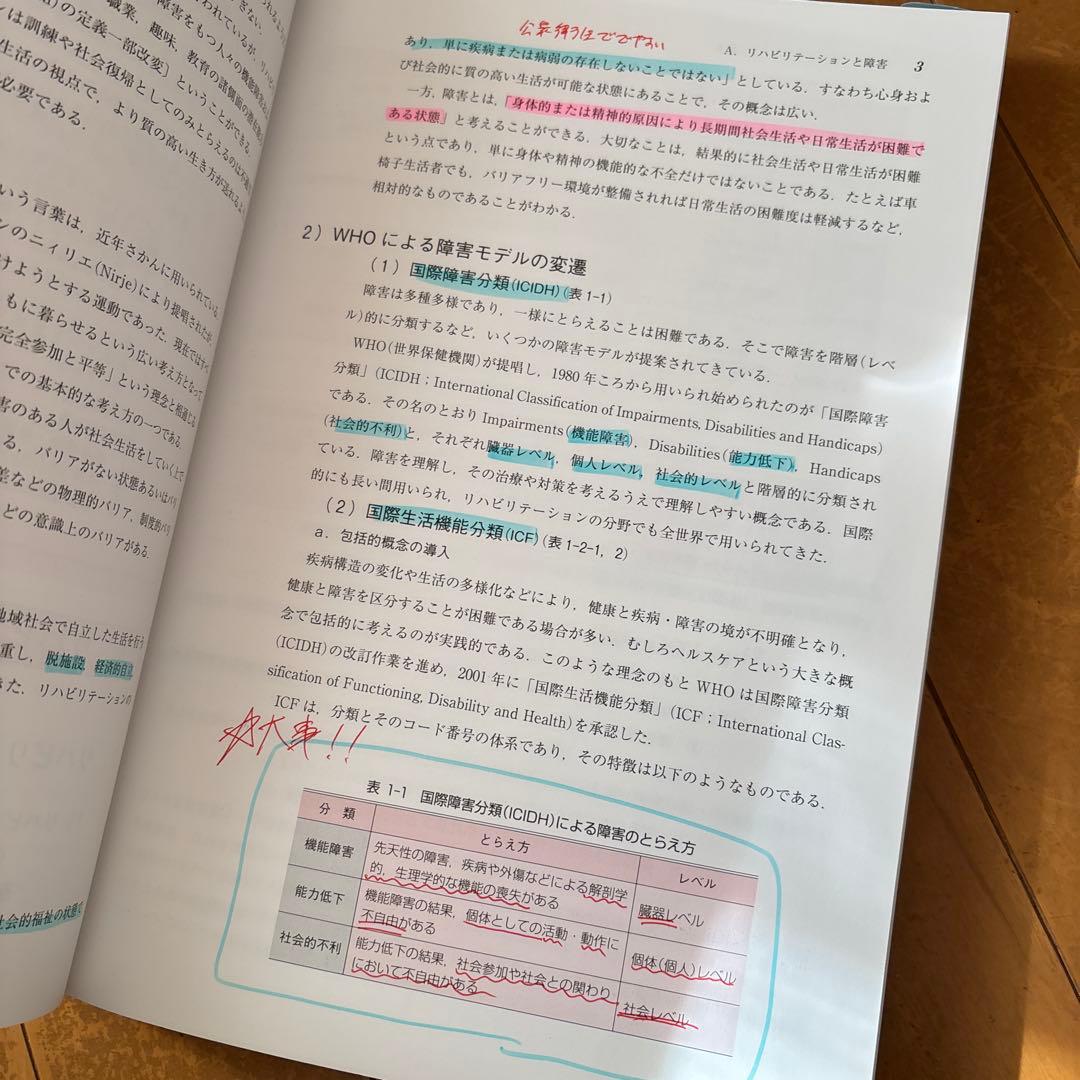 職業，趣味，教育の諸側面の潜在
の定義一部改変］ということができる．
は訓練や社会復帰としてのみとらえるのは不適
生活の視点で，より質の高い生き方が送れるよ
必要である．
いう言葉は，近年さかんに用いられている
ンのニィリエ(Nirje)により提唱されたが，
けようとする運動であった．現在では
もに暮らせるという広い考え方となって
完全参加と平等」という理念と相通じる
での基本的な考え方の一つである
害のある人が社会生活をしていく上で
る．バリアがない状態あるいはバリ
差などの物理的バリア，制度的バリ
どの意識上のバリアがある．
地域社会で自立した生活を行う
重し，脱施設，経済的自立，
きた．リハビリテーションの
社会的福祉の状態で
A．リハビリテーションと障害 3
あり，単に疾病または病弱の存在しないことではない」としている．すなわち心身およ
び社会的に質の高い生活が可能な状態にあることで，その概念は広い．
一方，障害とは，「身体的または精神的原因により長期間社会生活や日常生活が困難で
ある状態」と考えることができる．大切なことは，結果的に社会生活や日常生活が困難
という点であり，単に身体や精神の機能的な不全だけではないことである．たとえば車
椅子生活者でも，バリアフリー環境が整備されれば日常生活の困難度は軽減するなど，
相対的なものであることがわかる．
2）WHO による障害モデルの変遷
（1）国際障害分類(ICIDH)(表 1-1)
障害は多種多様であり，一様にとらえることは困難である．そこで障害を階層(レベ
ル)的に分類するなど，いくつかの障害モデルが提案されてきている．
WHO(世界保健機関)が提唱し，1980 年ころから用いられ始められたのが「国際障害
分類」(ICIDH；International Classification of Impairments, Disabilities and Handicaps)
である．その名のとおり Impairments(機能障害)，Disabilities(能力低下)，Handicaps
(社会的不利)と，それぞれ臓器レベル，個人レベル，社会的レベルと階層的に分類され
ている．障害を理解し，その治療や対策を考えるうえで理解しやすい概念である．国際
的にも長い間用いられ，リハビリテーションの分野でも全世界で用いられてきた．
（2）国際生活機能分類(ICF)(表 1-2-1，2)
a．包括的概念の導入
疾病構造の変化や生活の多様化などにより，健康と疾病・障害の境が不明確となり，
健康と障害を区分することが困難である場合が多い．むしろヘルスケアという大きな概
念で包括的に考えるのが実践的である．このような理念のもと WHO は国際障害分類
(ICIDH)の改訂作業を進め，2001 年に「国際生活機能分類」(ICF；International Clas-
sification of Functioning, Disability and Health)を承認した．
ICF は，分類とそのコード番号の体系であり，その特徴は以下のようなものである．
大事！！
表 1-1 国際障害分類(ICIDH)による障害のとらえ方
分類 とらえ方 レベル
機能障害 先天性の障害，疾病や外傷などによる解剖学
的，生理学的な機能の喪失がある 臓器レベル
能力低下 機能障害の結果，個体としての活動・動作に
不自由がある 個体(個人)レベル
社会的不利 能力低下の結果，社会参加や社会との関わり
において不自由がある 社会レベル